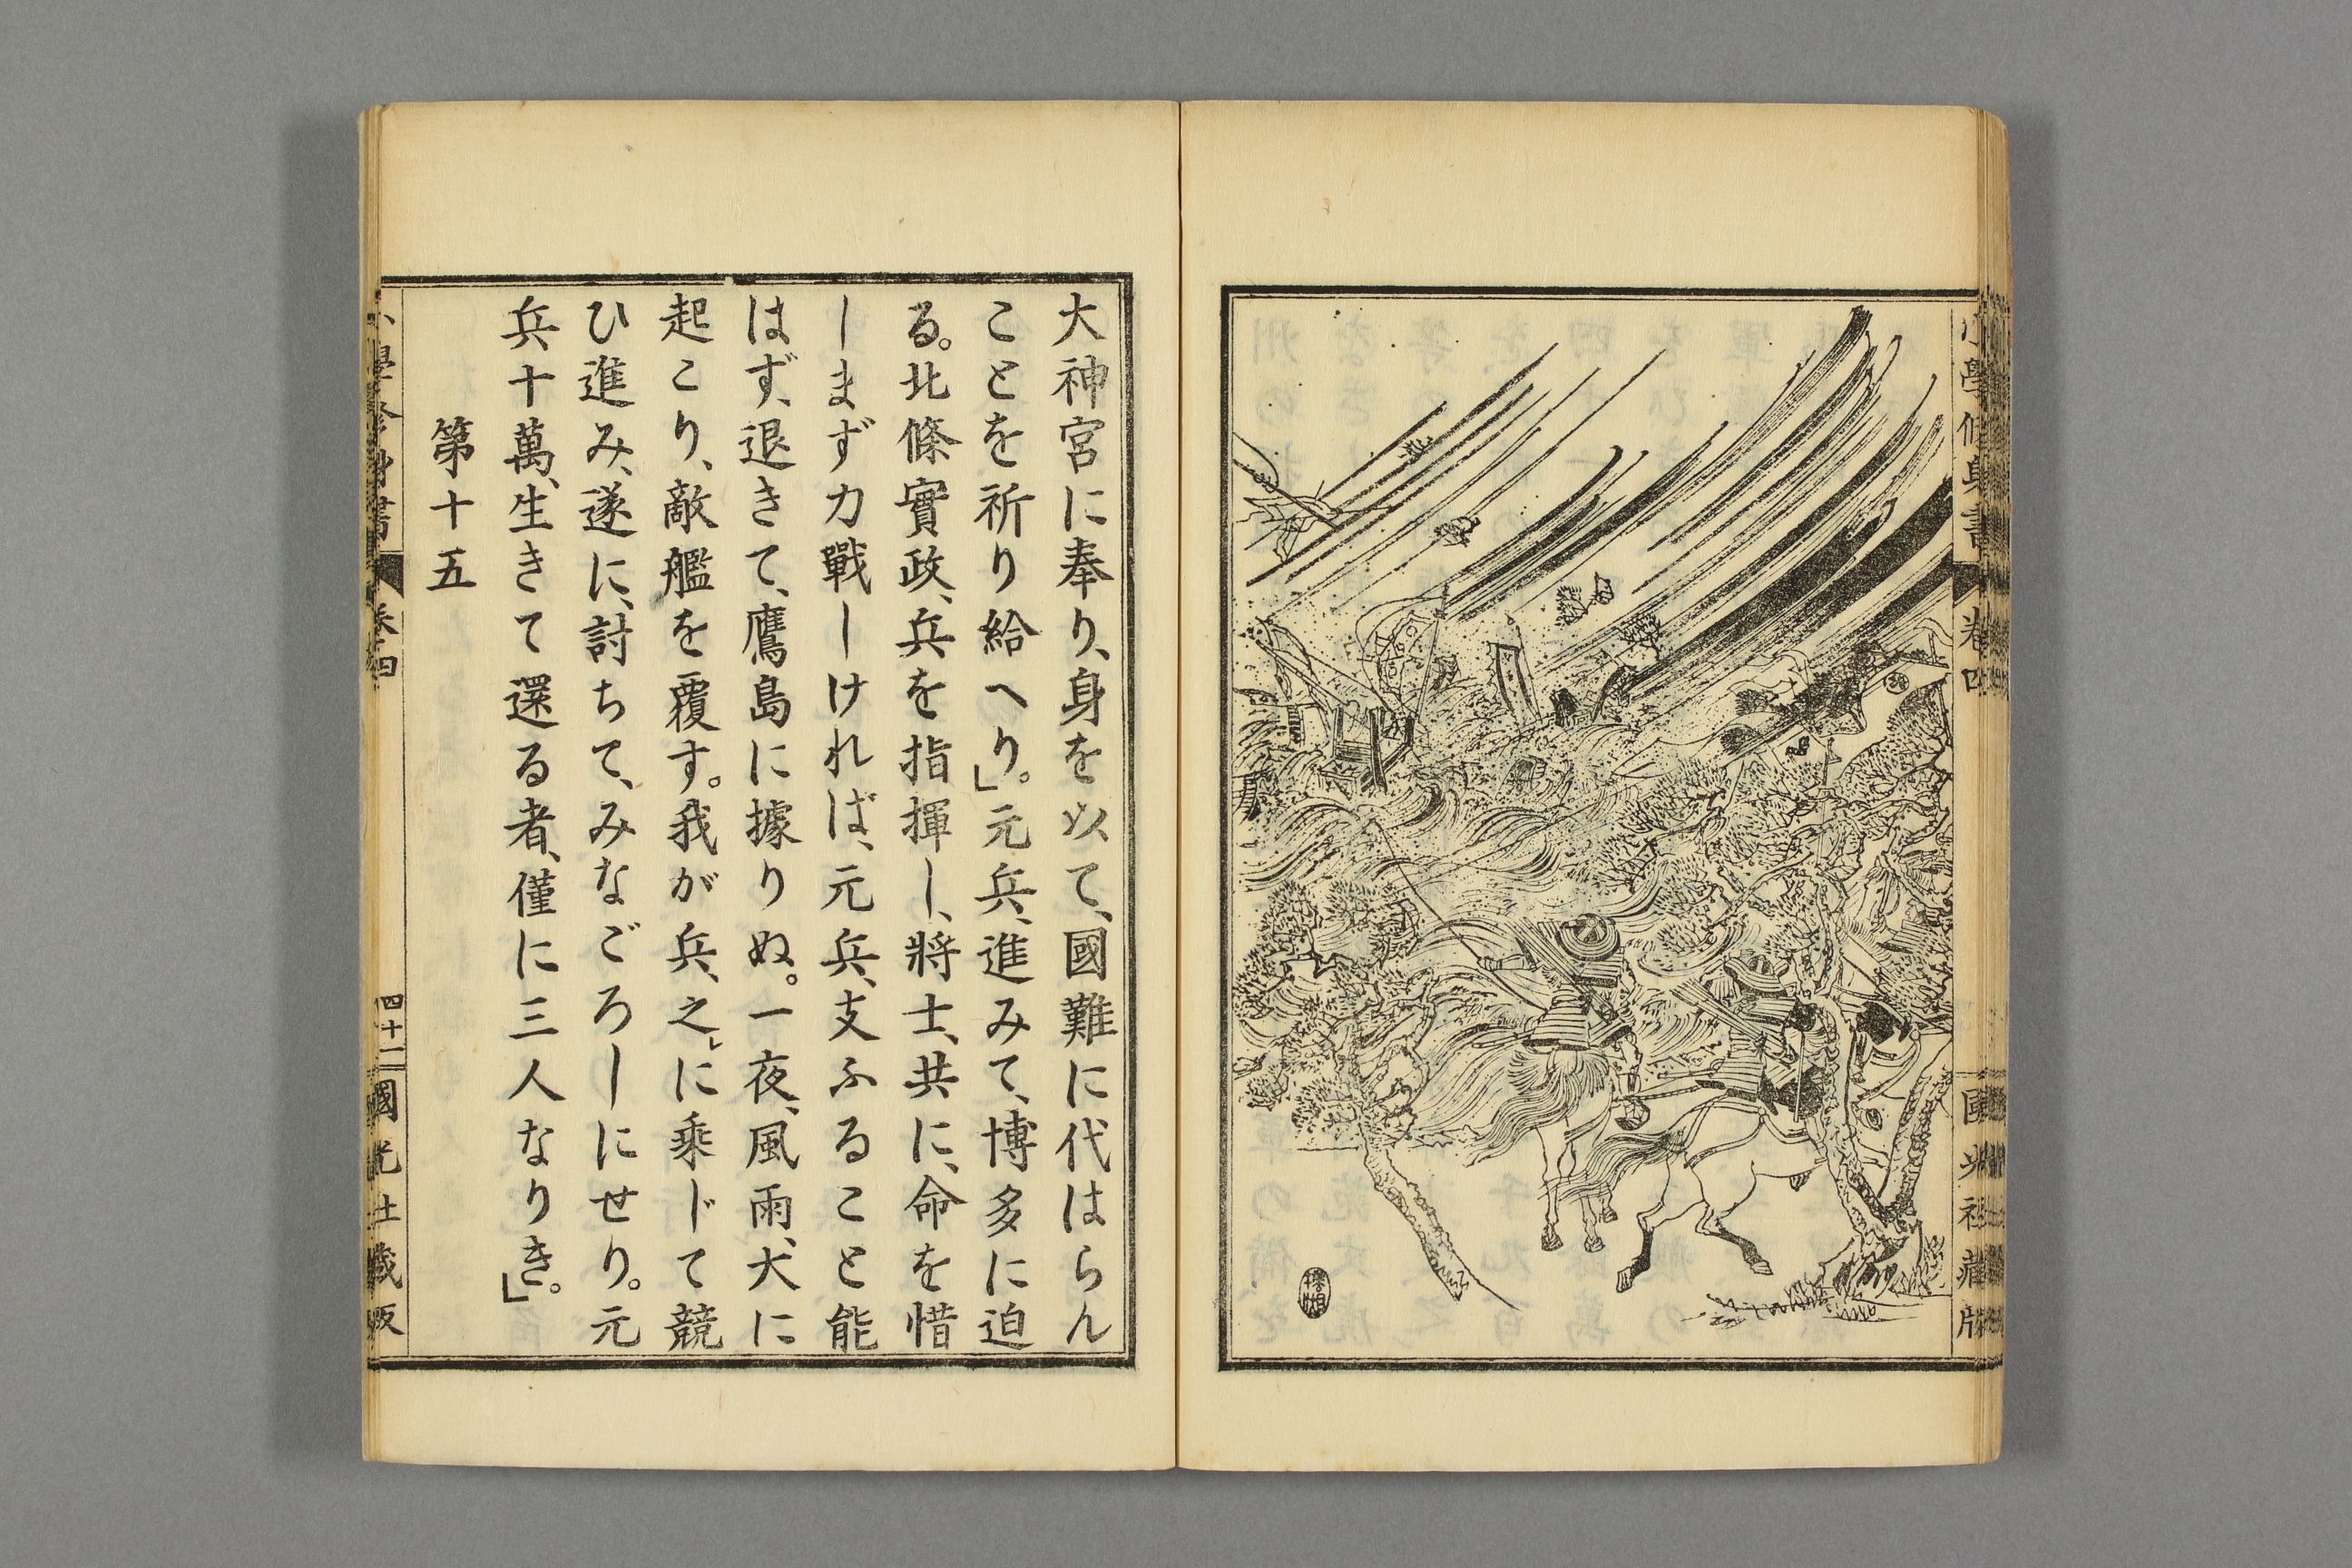 小學修身書 卷四 國光社藏版
大神宮に奉り、身を以て、國難に代はらん
ことを祈り給へり。」元兵、進みて、博多に迫
る。北條實政、兵を指揮し、將士、共に、命を惜
しまず力戰しければ、元兵、支ふること能
はず、退きて、鷹島に據りぬ。一夜、風雨、大に
起こり、敵艦を覆す。我が兵、之に乘じて競
ひ進み、遂に、討ちて、みなごろしにせり。元
兵十萬、生きて還る者、僅に三人なりき。」
第十五
小學修身書 卷四 四十二 國光社藏版